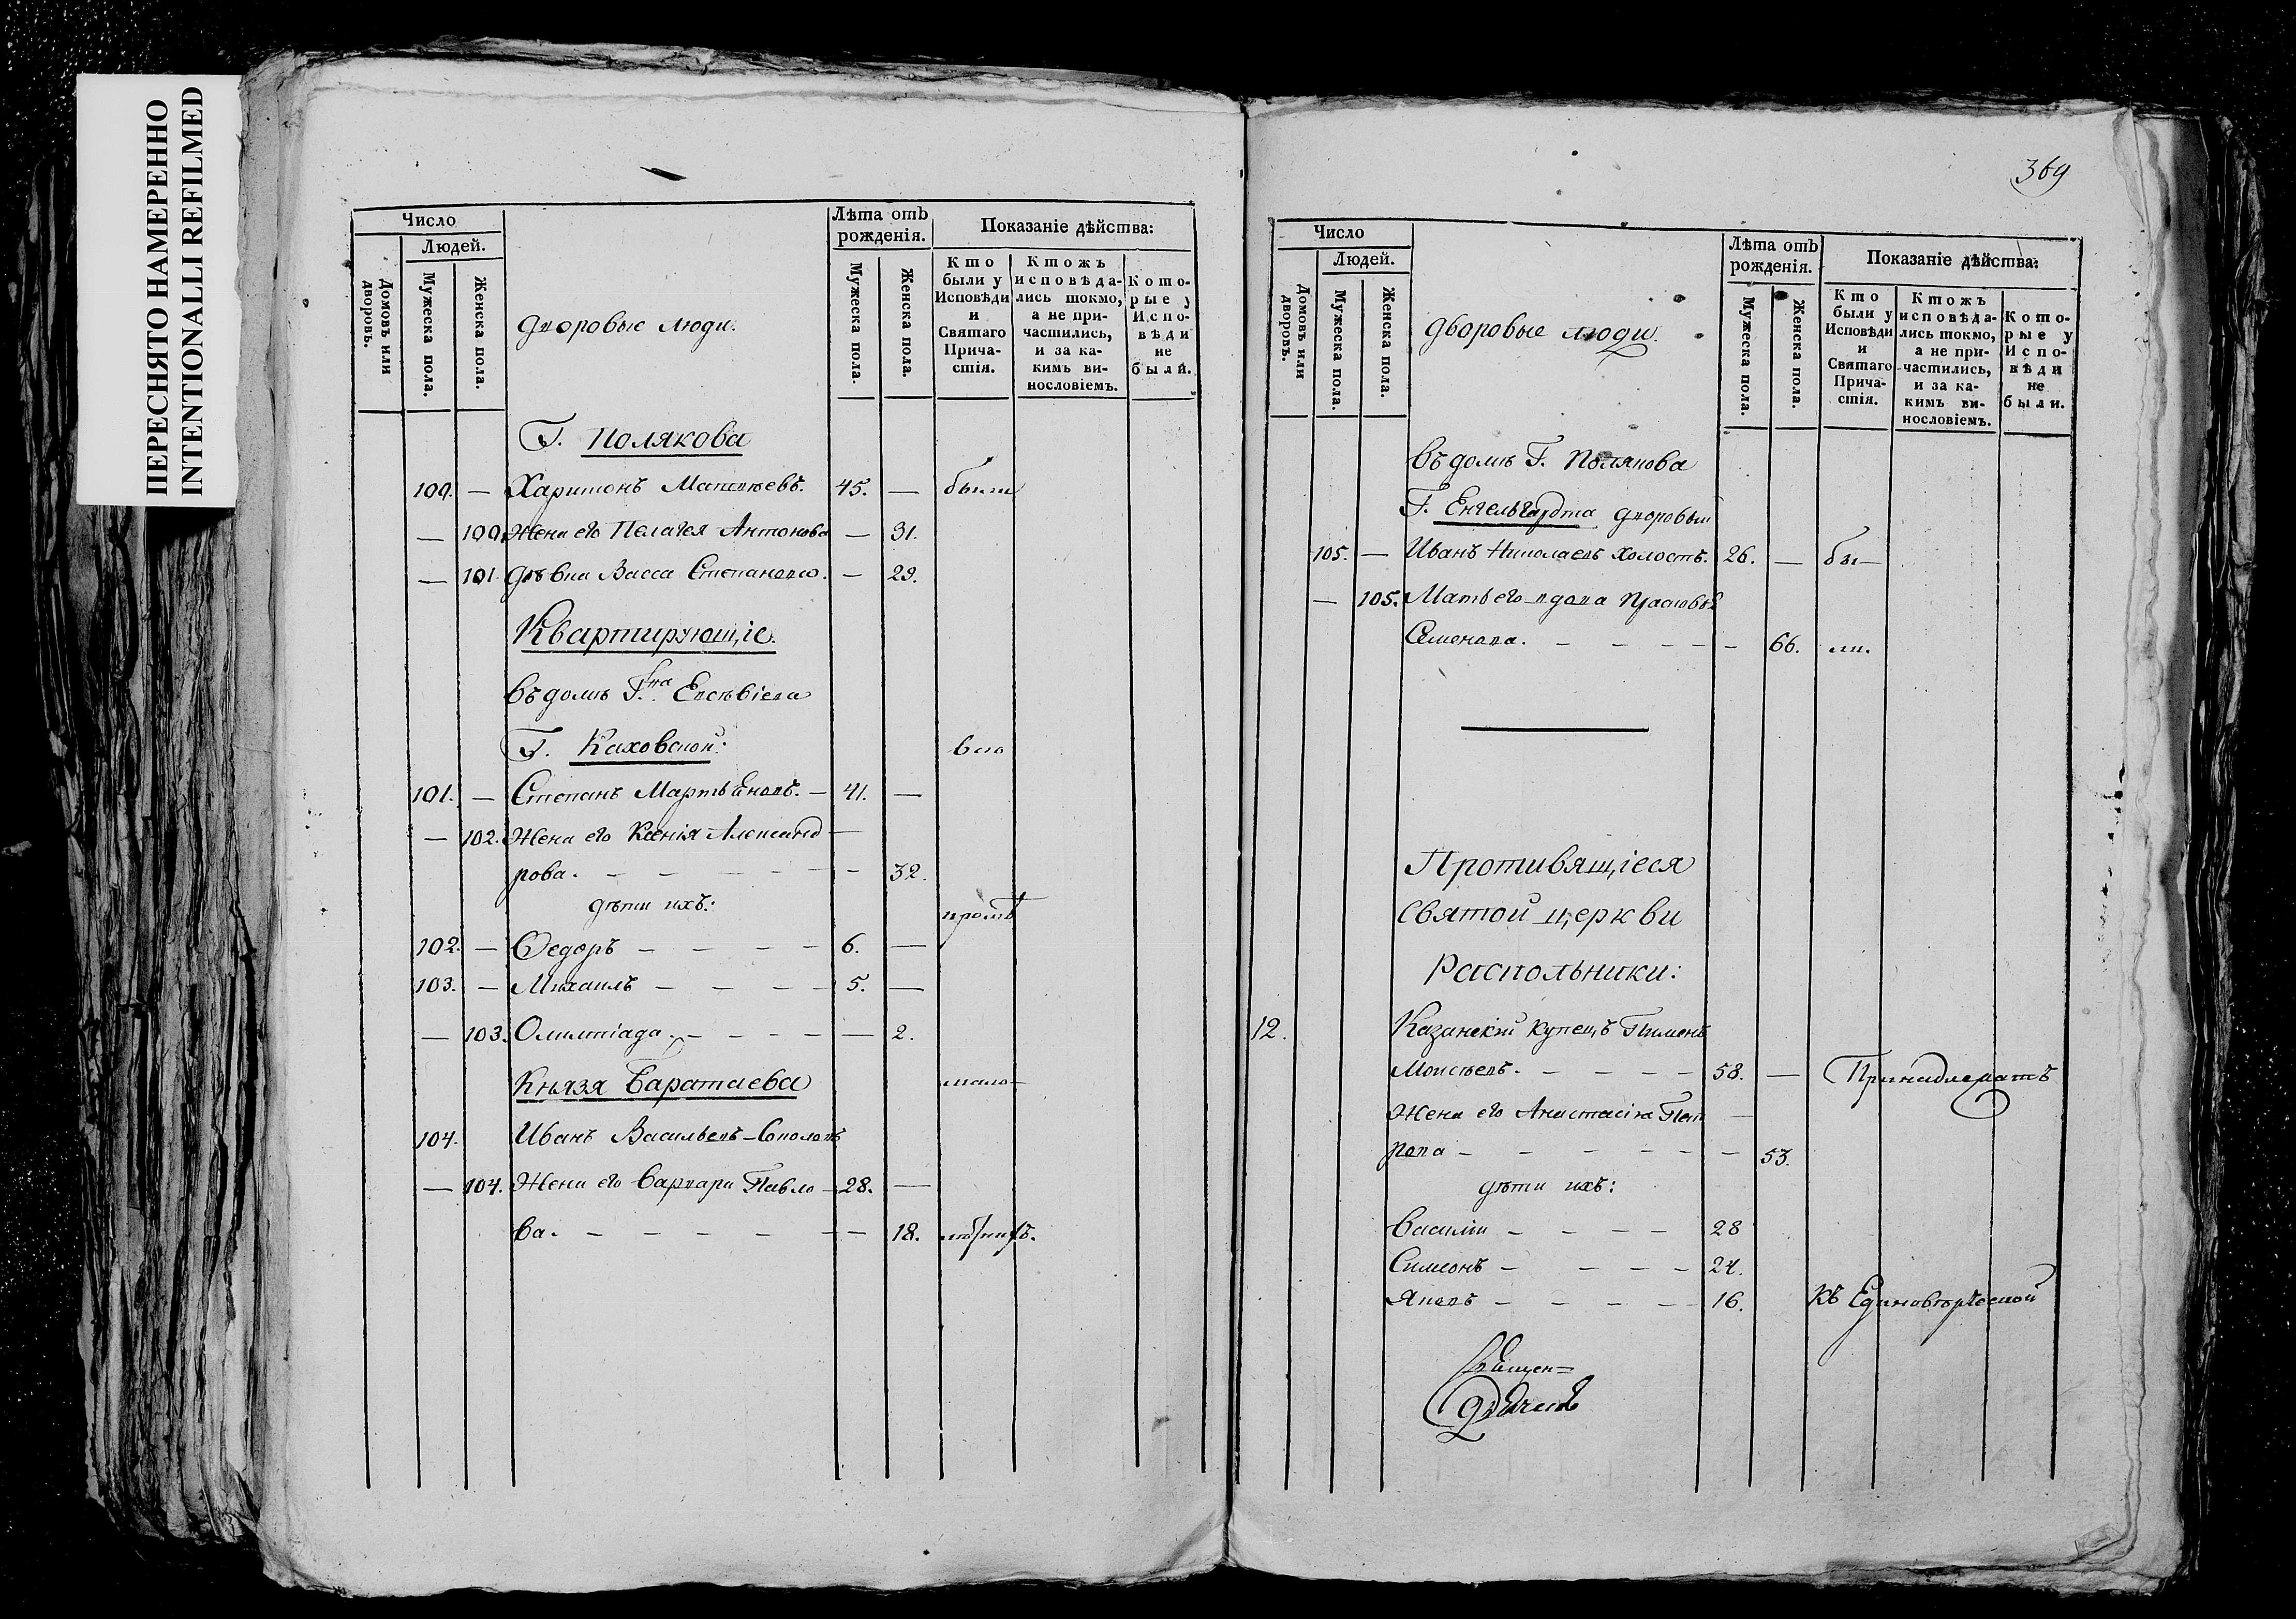 ПЕРЕСНЯТО НАМЕРЕННО
INTENTIONALLI REFILMED
Число
Людей.
Домовъ или дворовъ.
Мужеска пола.
Женска пола.
дворовые люди.
Лѣта отъ рожденія.
Мужеска пола.
Женска пола.
Показаніе дѣйства:
Кто были у Исповѣди и Святаго Причастія.
Ктожъ исповѣдались токмо, а не причастились, и за какимъ винословіемъ.
Которые у Исповѣди не были.
Г. Полякова
100. — Харитонъ Матвѣевъ. 45. — были
— 100. Жена его Пелагея Антонова — 31.
— 101. Дѣвка Васса Степанова. — 29.
Квартирующіе.
въ домѣ Г.
Г. Каховской: всѣ
101. — Степанъ Мартьяновъ. — 41. —
— 102. Жена его Ксенія Александ —
рова. — — — — — 32.
дѣти ихъ: кромѣ
102. — Ѳедоръ — — — — 6. —
103. — Михаилъ — — — — 5. —
— 103. Олимпіада. — — — — 2.
Князя Баратаева мало—
104. Иванъ Васильевъ Соколовъ
— 104. Жена его Варвара Павло — 28. —
ва. — — — — — — 18. лѣтнихъ.
369
Число
Людей.
Домовъ или дворовъ.
Мужеска пола.
Женска пола.
дворовые люди.
Лѣта отъ рожденія.
Мужеска пола.
Женска пола.
Показаніе дѣйства:
Кто были у Исповѣди и Святаго Причастія.
Ктожъ исповѣдались токмо, а не причастились, и за какимъ винословіемъ.
Которые у Исповѣди не были.
въ домѣ Г. Полякова
Г. Енгельгардта дворовыи
105. — Иванъ Николаевъ холостъ. 26. — бы—
— 105. Мать его вдова Прасковья
Семенова. — — — — — 66. ли.
Противящіеся
святой церкви
Раскольники:
12. Казанскій купецъ Пименъ
Моисѣевъ. — — — — 58. — Принадлежатъ
Жена его Анастасія Пет —
рова — — — — — — 53.
дѣти ихъ:
Василіи — — — — 28
Симеонъ — — — — 24.
Яковъ — — — — — 16. къ Единовѣрческой